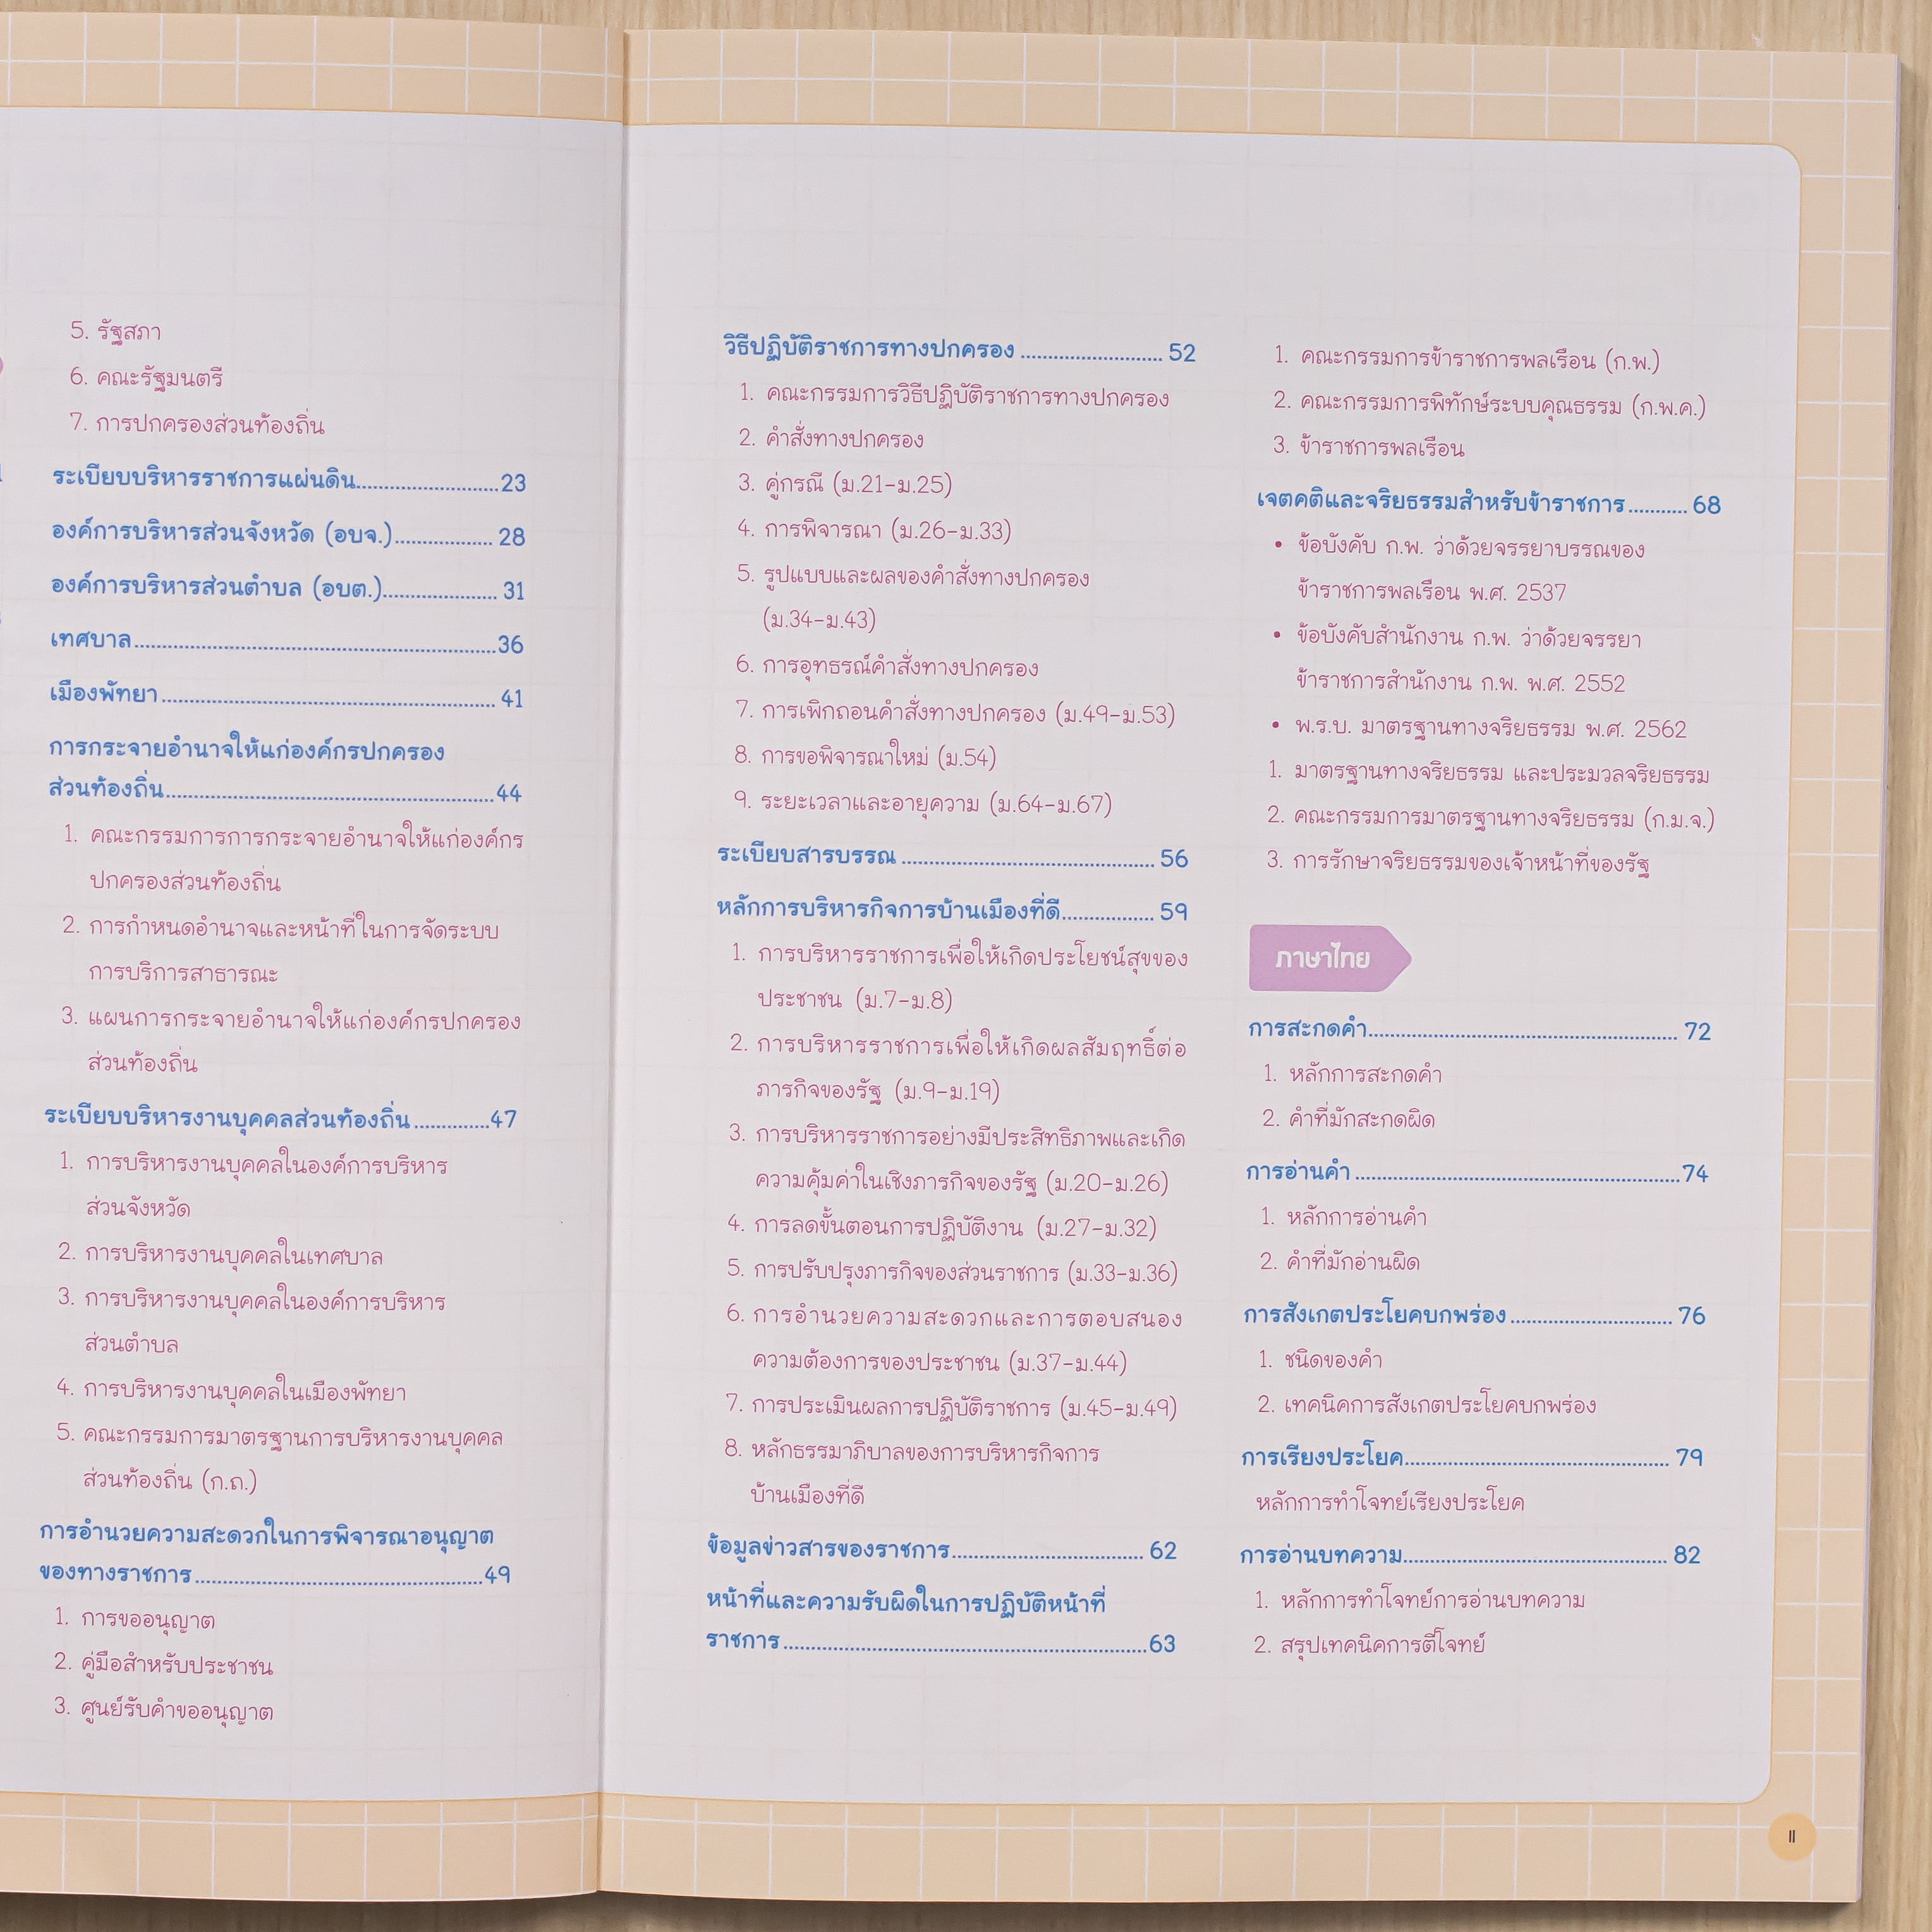 5. รัฐสภา
6. คณะรัฐมนตรี
7. การปกครองส่วนท้องถิ่น
ระเบียบบริหารราชการแผ่นดิน........................23
องค์การบริหารส่วนจังหวัด (อบจ.)................. 28
องค์การบริหารส่วนตำบล (อบต.).................... 31
เทศบาล................................................................36
เมืองพัทยา........................................................... 41
การกระจายอำนาจให้แก่องค์กรปกครอง
ส่วนท้องถิ่น..........................................................44
1. คณะกรรมการการกระจายอำนาจให้แก่องค์กร
ปกครองส่วนท้องถิ่น
2. การกำหนดอำนาจและหน้าที่ในการจัดระบบ
การบริการสาธารณะ
3. แผนการกระจายอำนาจให้แก่องค์กรปกครอง
ส่วนท้องถิ่น
ระเบียบบริหารงานบุคคลส่วนท้องถิ่น.............47
1. การบริหารงานบุคคลในองค์การบริหาร
ส่วนจังหวัด
2. การบริหารงานบุคคลในเทศบาล
3. การบริหารงานบุคคลในองค์การบริหาร
ส่วนตำบล
4. การบริหารงานบุคคลในเมืองพัทยา
5. คณะกรรมการมาตรฐานการบริหารงานบุคคล
ส่วนท้องถิ่น (ก.ถ.)
การอำนวยความสะดวกในการพิจารณาอนุญาต
ของทางราชการ...................................................49
1. การขออนุญาต
2. คู่มือสำหรับประชาชน
3. ศูนย์รับคำขออนุญาต
วิธีปฏิบัติราชการทางปกครอง ......................... 52
1. คณะกรรมการวิธีปฏิบัติราชการทางปกครอง
2. คำสั่งทางปกครอง
3. คู่กรณี (ม.21-ม.25)
4. การพิจารณา (ม.26-ม.33)
5. รูปแบบและผลของคำสั่งทางปกครอง
(ม.34-ม.43)
6. การอุทธรณ์คำสั่งทางปกครอง
7. การเพิกถอนคำสั่งทางปกครอง (ม.49-ม.53)
8. การขอพิจารณาใหม่ (ม.54)
9. ระยะเวลาและอายุความ (ม.64-ม.67)
ระเบียบสารบรรณ ............................................. 56
หลักการบริหารกิจการบ้านเมืองที่ดี................ 59
1. การบริหารราชการเพื่อให้เกิดประโยชน์สุขของ
ประชาชน (ม.7-ม.8)
2. การบริหารราชการเพื่อให้เกิดผลสัมฤทธิ์ต่อ
ภารกิจของรัฐ (ม.9-ม.19)
3. การบริหารราชการอย่างมีประสิทธิภาพและเกิด
ความคุ้มค่าในเชิงภารกิจของรัฐ (ม.20-ม.26)
4. การลดขั้นตอนการปฏิบัติงาน (ม.27-ม.32)
5. การปรับปรุงภารกิจของส่วนราชการ (ม.33-ม.36)
6. การอำนวยความสะดวกและการตอบสนอง
ความต้องการของประชาชน (ม.37-ม.44)
7. การประเมินผลการปฏิบัติราชการ (ม.45-ม.49)
8. หลักธรรมาภิบาลของการบริหารกิจการ
บ้านเมืองที่ดี
ข้อมูลข่าวสารของราชการ.................................. 62
หน้าที่และความรับผิดในการปฏิบัติหน้าที่
ราชการ................................................................63
1. คณะกรรมการข้าราชการพลเรือน (ก.พ.)
2. คณะกรรมการพิทักษ์ระบบคุณธรรม (ก.พ.ค.)
3. ข้าราชการพลเรือน
เจตคติและจริยธรรมสำหรับข้าราชการ........... 68
• ข้อบังคับ ก.พ. ว่าด้วยจรรยาบรรณของ
ข้าราชการพลเรือน พ.ศ. 2537
• ข้อบังคับสำนักงาน ก.พ. ว่าด้วยจรรยา
ข้าราชการสำนักงาน ก.พ. พ.ศ. 2552
• พ.ร.บ. มาตรฐานทางจริยธรรม พ.ศ. 2562
1. มาตรฐานทางจริยธรรม และประมวลจริยธรรม
2. คณะกรรมการมาตรฐานทางจริยธรรม (ก.ม.จ.)
3. การรักษาจริยธรรมของเจ้าหน้าที่ของรัฐ
ภาษาไทย
การสะกดคำ....................................................... 72
1. หลักการสะกดคำ
2. คำที่มักสะกดผิด
การอ่านคำ..........................................................74
1. หลักการอ่านคำ
2. คำที่มักอ่านผิด
การสังเกตประโยคบกพร่อง............................. 76
1. ชนิดของคำ
2. เทคนิคการสังเกตประโยคบกพร่อง
การเรียงประโยค............................................... 79
หลักการทำโจทย์เรียงประโยค
การอ่านบทความ............................................... 82
1. หลักการทำโจทย์การอ่านบทความ
2. สรุปเทคนิคการตีโจทย์
II